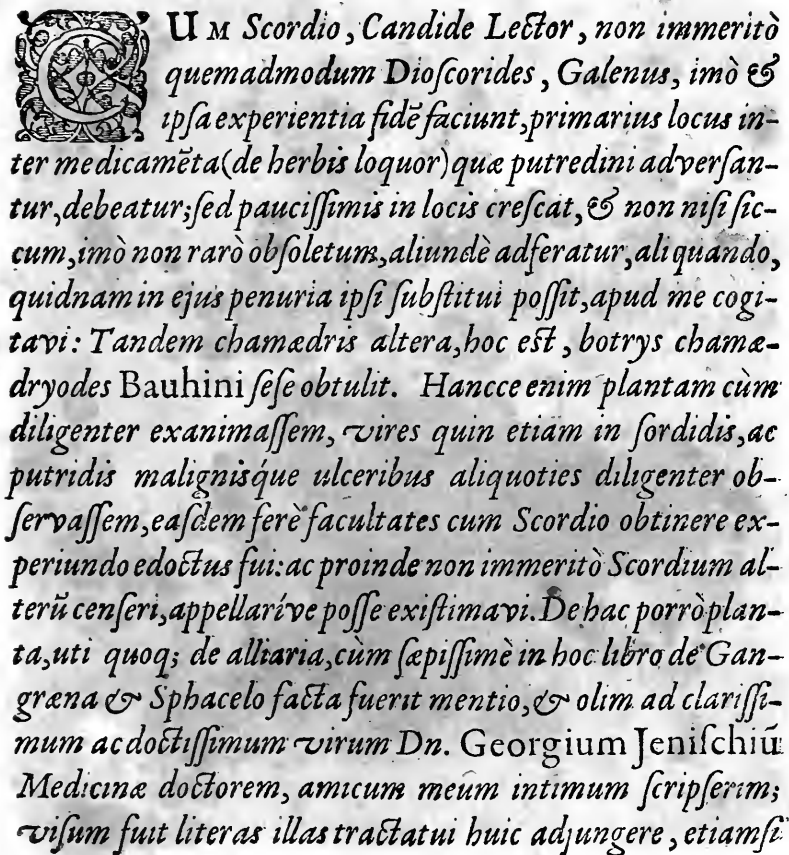 CUM Scordio, Candide Lector, non immeritò
quemadmodum Dioſcorides, Galenus, imò &
ipſa experientia fidē faciunt, primarius locus in-
ter medicamēta (de herbis loquor) quæ putredini adverſan-
tur, debeatur; ſed pauciſſimis in locis creſcat, & non niſi ſic-
cum, imò non rarò obſoletum, aliundè adferatur, aliquando,
quidnam in ejus penuria ipſi ſubſtitui poſſit, apud me cogi-
tavi: Tandem chamædris altera, hoc eſt, botrys chamæ-
dryodes Bauhini ſeſe obtulit. Hancce enim plantam cùm
diligenter exanimaſſem, vires quin etiam in ſordidis, ac
putridis malignisq́ue ulceribus aliquoties diligenter ob-
ſervaſſem, eaſdem ferè facultates cum Scordio obtinere ex-
periundo edoctus fui: ac proinde non immeritò Scordium al-
terū cenſeri, appellaríve poſſe exiſtimavi. De hac porrò plan-
ta, uti quoq; de alliaria, cùm ſæpiſſimè in hoc libro de Gan-
græna & Sphacelo facta fuerit mentio, & olim ad clariſſi-
mum ac doctiſſimum virum Dn. Georgium Jeniſchiū
Medicinæ doctorem, amicum meum intimum ſcripſerim;
viſum fuit literas illas tractatui huic adjungere, etiamſi